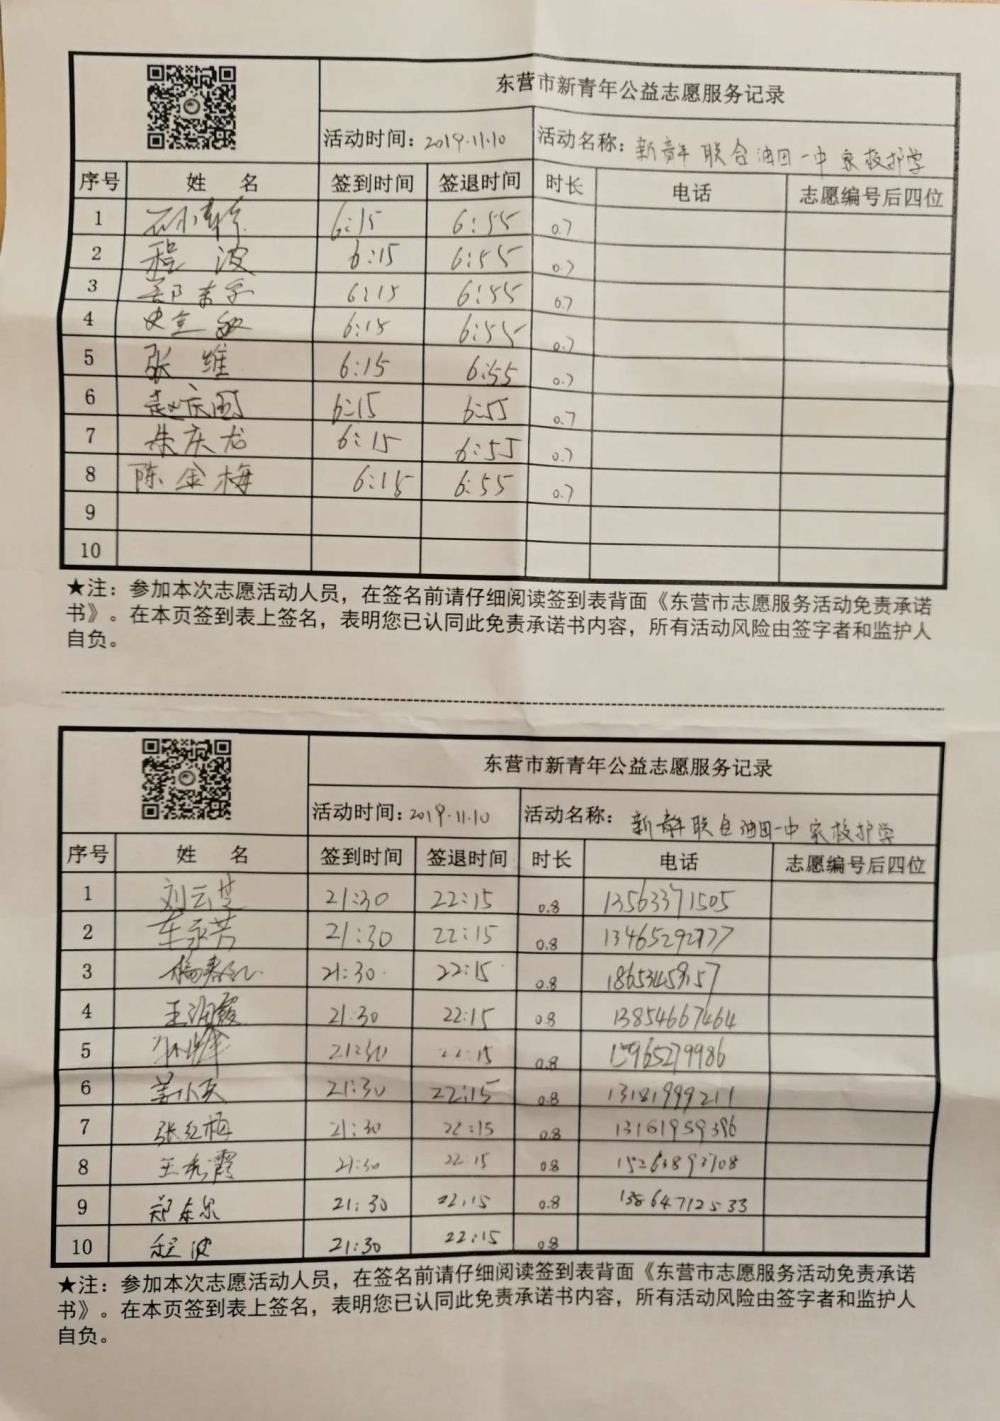 东营市新青年公益志愿服务记录
活动时间：2019.11.10 活动名称：新青年联合油田一中家校护学
序号 姓 名 签到时间 签退时间 时长 电话 志愿编号后四位
1 6:15 6:55 0.7
2 程波 6:15 6:55 0.7
3 郑东 6:15 6:55 0.7
4 史 6:15 6:55 0.7
5 张维 6:15 6:55 0.7
6 赵庆国 6:15 6:55 0.7
7 朱庆龙 6:15 6:55 0.7
8 陈金梅 6:15 6:55 0.7
9
10
★注：参加本次志愿活动人员，在签名前请仔细阅读签到表背面《东营市志愿服务活动免责承诺
书》。在本页签到表上签名，表明您已认同此免责承诺书内容，所有活动风险由签字者和监护人
自负。
东营市新青年公益志愿服务记录
活动时间：2019.11.10 活动名称：新青年联合油田一中家校护学
序号 姓 名 签到时间 签退时间 时长 电话 志愿编号后四位
1 刘云芝 21:30 22:15 0.8 13563371505
2 车永芳 21:30 22:15 0.8
3 21:30 22:15 0.8
4 王润霞 21:30 22:15 0.8 13854667464
5 21:30 22:15 0.8 15965279986
6 姜小庆 21:30 22:15 0.8 13181999211
7 张红梅 21:30 22:15 0.8 13161959396
8 王秀霞 21:30 22:15 0.8
9 郑东 21:30 22:15 0.8 13864712533
10 程波 21:30 22:15 0.8
★注：参加本次志愿活动人员，在签名前请仔细阅读签到表背面《东营市志愿服务活动免责承诺
书》。在本页签到表上签名，表明您已认同此免责承诺书内容，所有活动风险由签字者和监护人
自负。